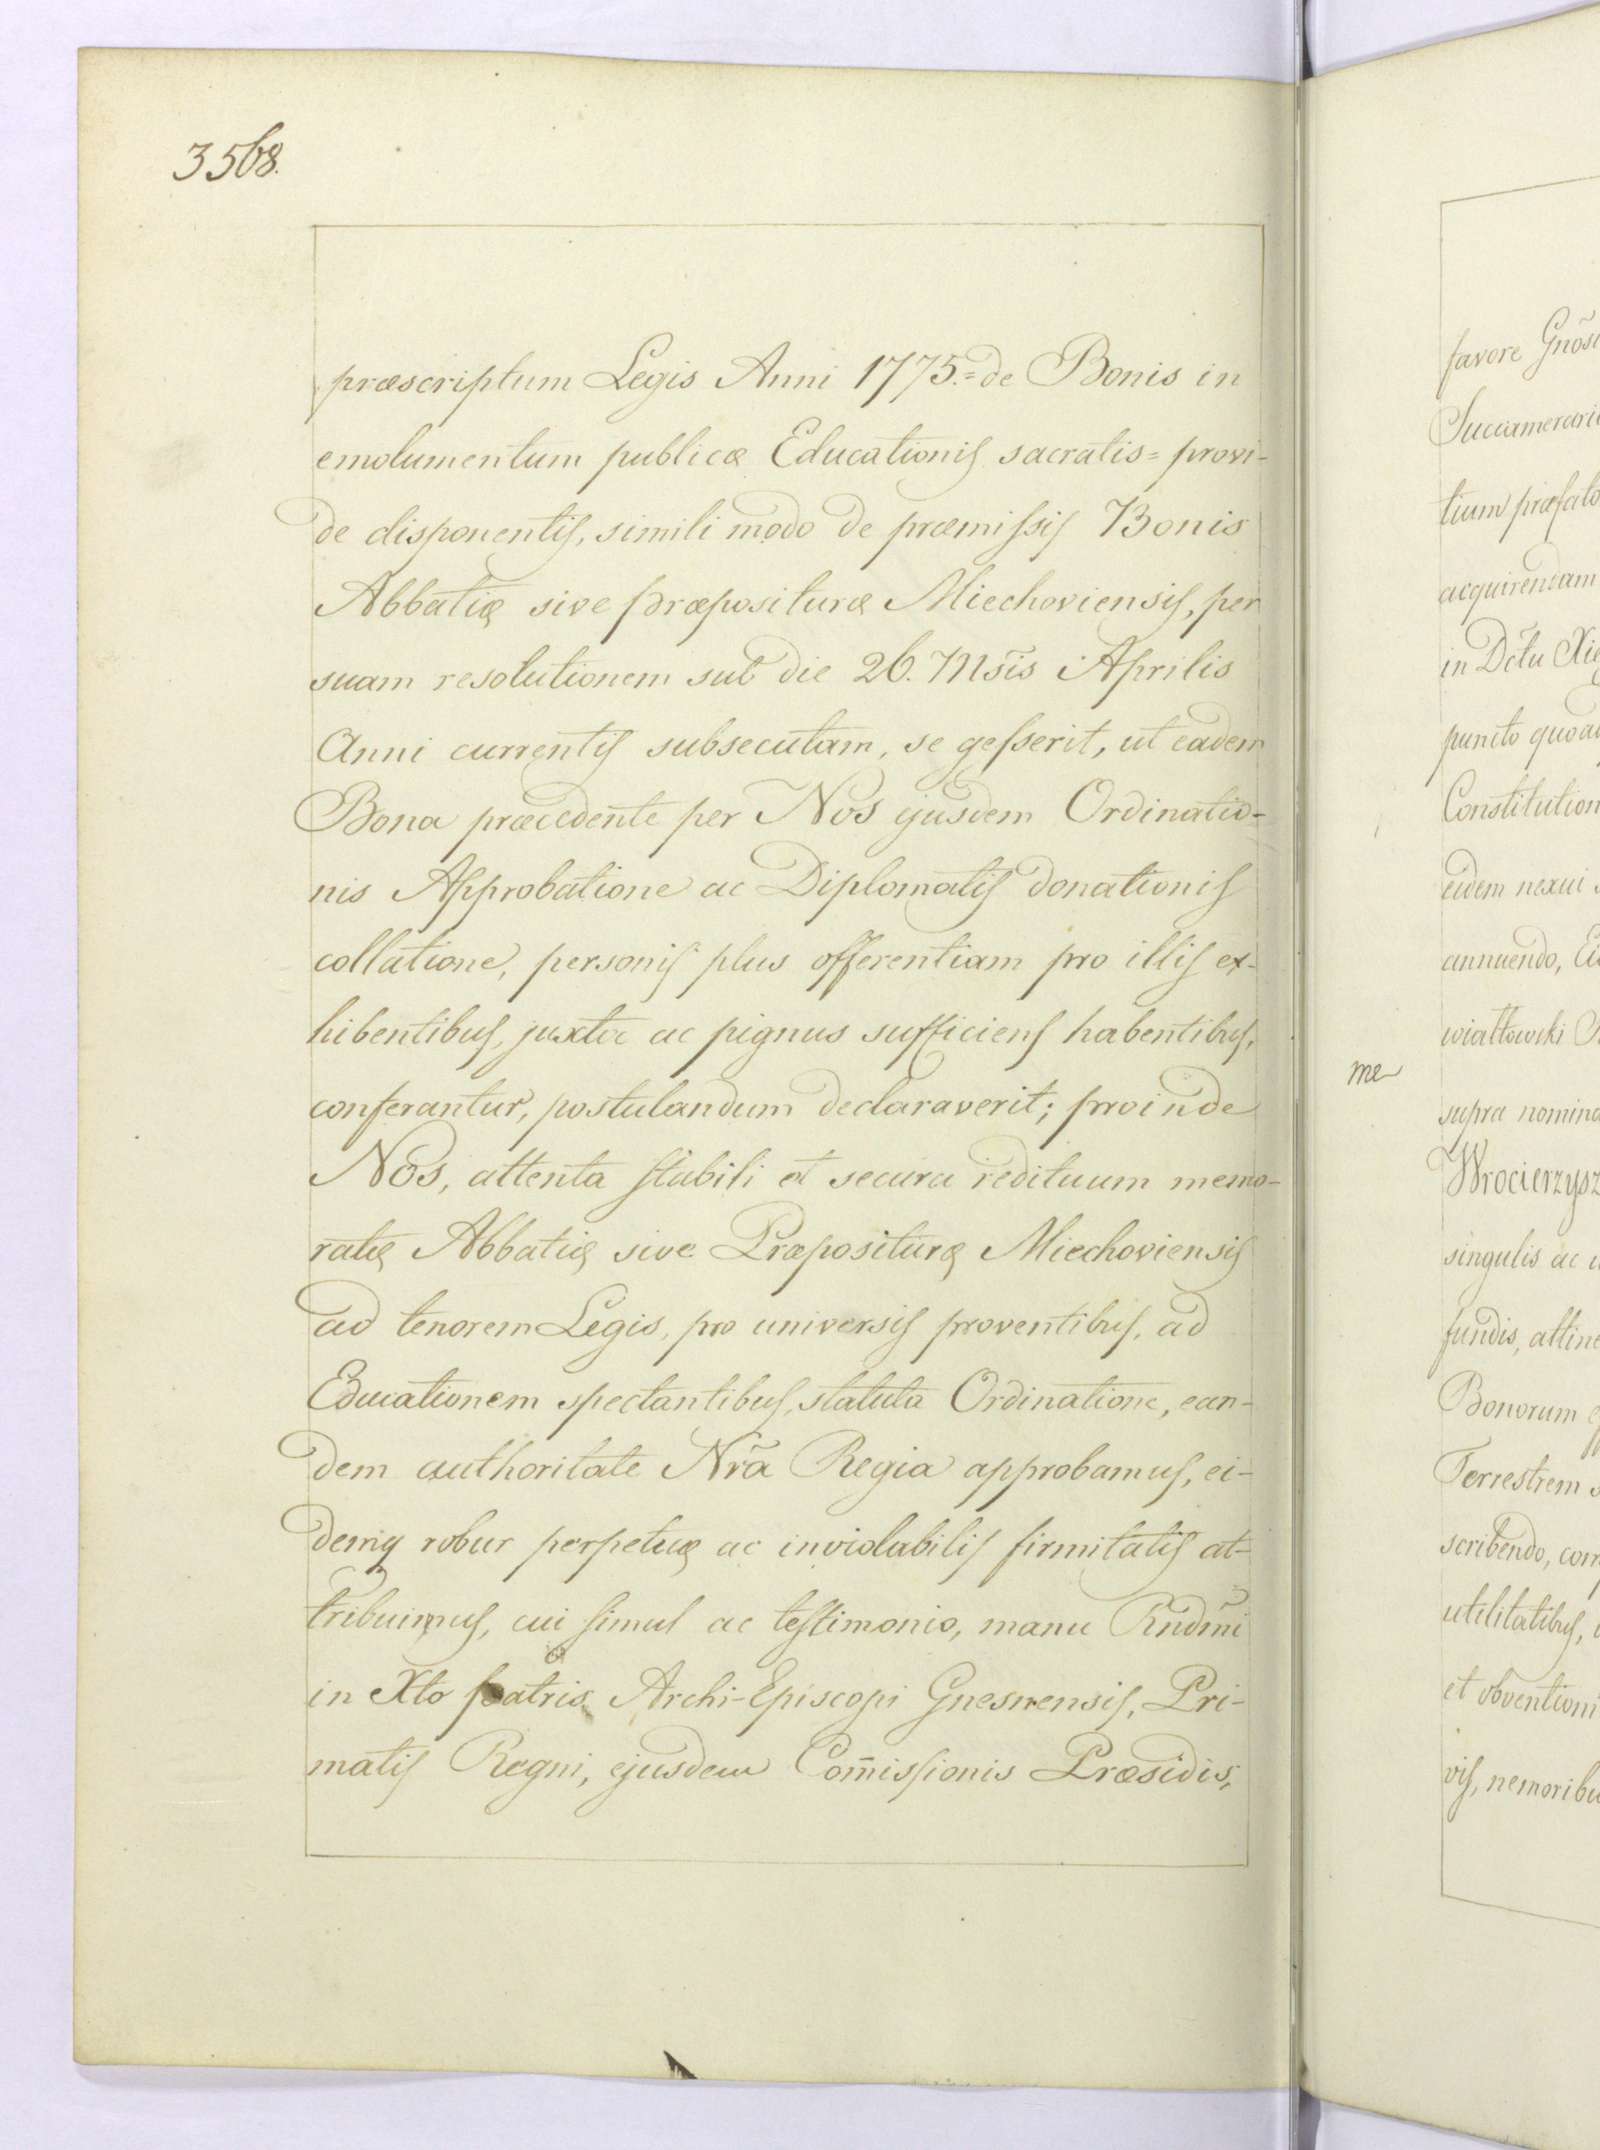 3568.
præscriptum Legis Anni 1775.= de Bonis in
emolumentum publicæ Educationis sacratis= provi-
de disponentis, simili modo de præmissis Bonis
Abbatiæ sive præposituræ Miechoviensis, per
suam resolutionem sub die 26. Msis Aprilis
Anni currentis subsecutam, se gesserit, ut eadem
Bona præcedente per Nos ejusdem Ordinatio-
nis Approbatione ac Diplomatis donationis
collatione, personis plus offerentiam pro illis ex-
hibentibus, juxta ac pignus sufficiens habentibus,
conferantur, postulandum declaraverit; proinde
Nos, attenta stabili et secura redituum memo-
ratæ Abbatiæ sive Præposituræ Miechoviensis
ad tenorem Legis, pro universis proventibus, ad
Educationem spectantibus, statuta Ordinatione, ean-
dem authoritate Nrã Regia approbamus, ei-
demq robur perpetuæ ac inviolabilis firmitatis at-
tribuimus, cui simul ac testimonio, manu Rndmi
in Xto patris Archi-Episcopi Gnesnensis, Pri-
matis Regni, ejusdem Com̃issionis Præsidis,
favore
tium
acquirendam
in Dctu
puncto
eidem nexui
annuendo,
wiatłowski
me
supra
singulis ac
fundis,
Bonorum
Terrestrem
scribendo,
utilitatibus,
et
vis,